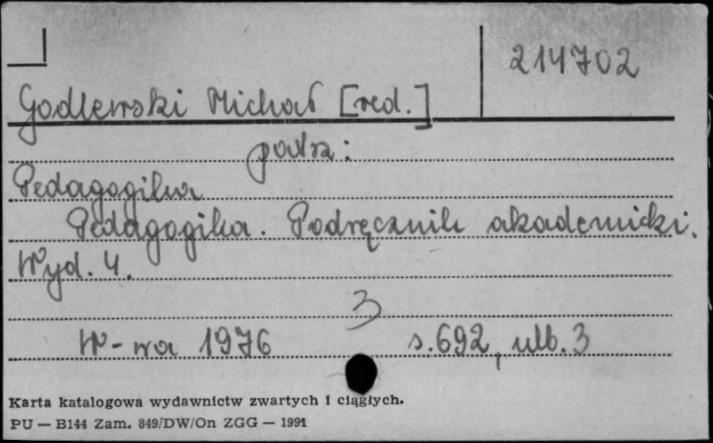 214702
Godlewski Michał [red.]
patrz:
Pedagogika
Pedagogika. Podręcznik akademicki.
Wyd. 4.
3
W-wa 1976 s.692, ulb. 3
Karta katalogowa wydawnictw zwartych i ciągłych.
PU — B144 Zam. 849/DW/On ZGG — 1991